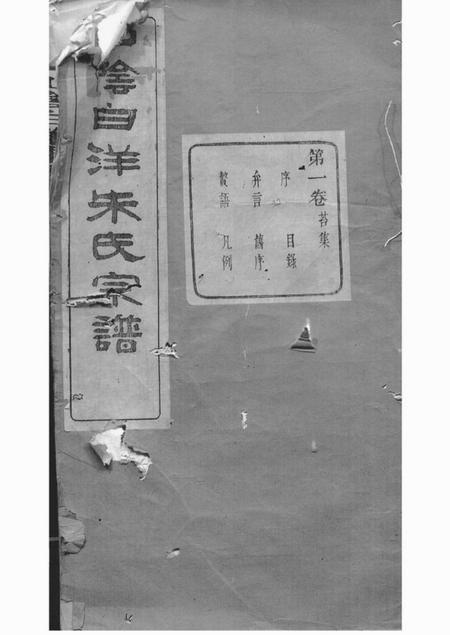 第一卷 集
序 目錄
弁言 舊序
語 凡例
陰白洋朱氏宗譜